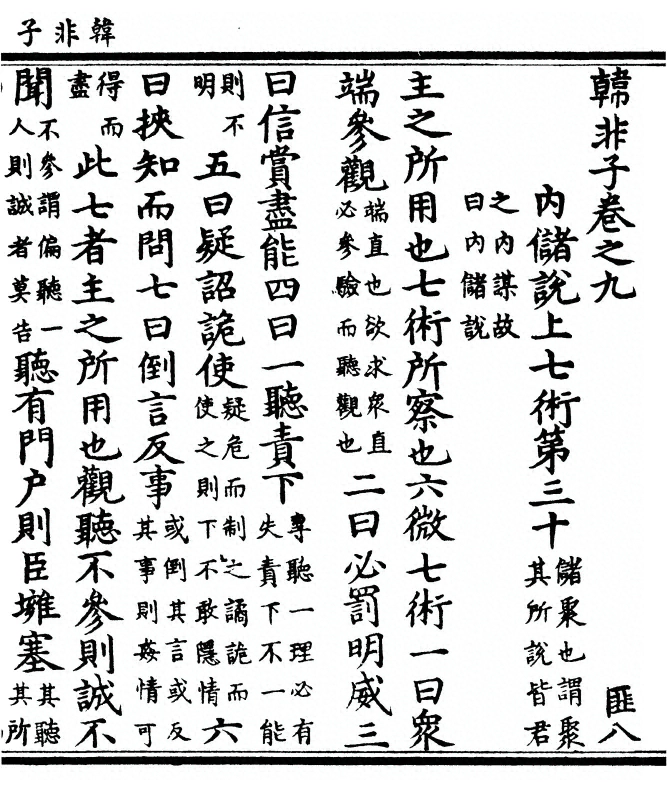 韓非子
韓非子卷之九 匪八
內儲說上七術第三十儲聚也謂聚其所說皆君
之內謀故曰內儲說
主之所用也七術所察也六微七術一曰衆
端參觀端直也欲求衆直必參驗而聽觀也二曰必罰明威三
曰信賞盡能四曰一聽責下專聽一理必有失責下不一能
則不明五曰疑詔詭使疑危而制之譎詭而使之則下不敢隱情六
曰挾知而問七曰倒言反事或倒其言或反其事則姦情可
得而盡此七者主之所用也觀聽不參則誠不
聞不參謂偏聽一人則誠者莫告聽有門户則臣壅塞其聽其所